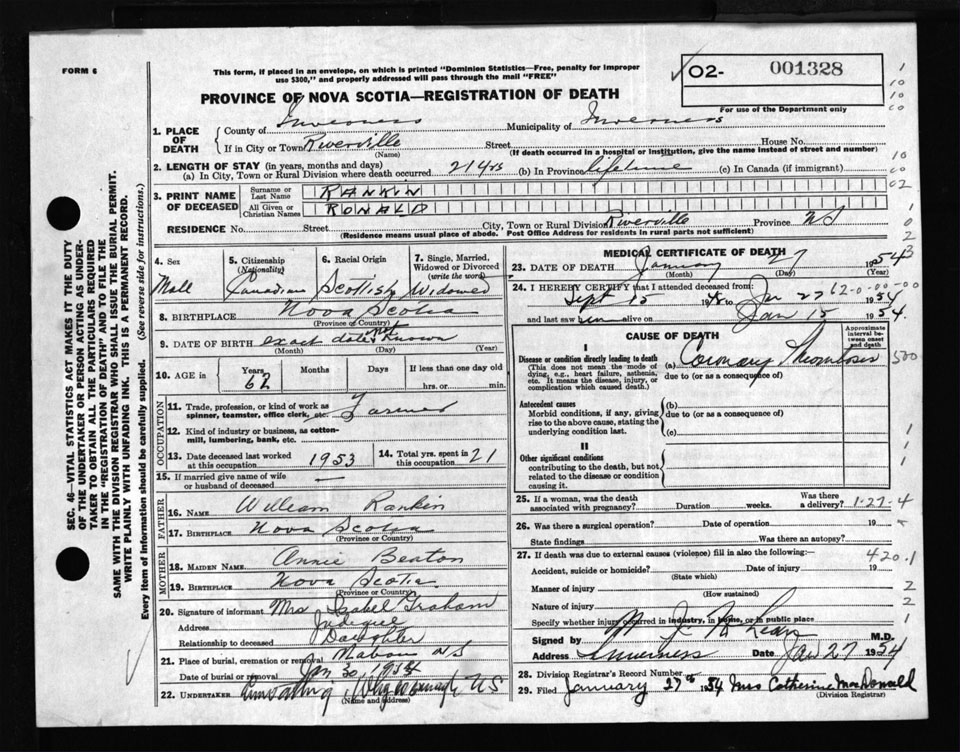 FORM 6
This form, if placed in an envelope, on which is printed "Dominion Statistics—Free, penalty for improper
use $300," and properly addressed will pass through the mail "FREE"
O2- 001328
For use of the Department only
PROVINCE OF NOVA SCOTIA—REGISTRATION OF DEATH
1. PLACE OF DEATH { County of Inverness Municipality of Inverness
If in City or Town Riverville Street House No.
(Name) (If death occurred in a hospital or institution, give the name instead of street and number)
2. LENGTH OF STAY (in years, months and days)
(a) In City, Town or Rural Division where death occurred 21 yrs (b) In Province lifetime (c) In Canada (if immigrant)
3. PRINT NAME OF DECEASED { Surname or Last Name RANKIN
All Given or Christian Names RONALD
RESIDENCE No. Street City, Town or Rural Division Riverville Province NS
(Residence means usual place of abode. Post Office Address for residents in rural parts not sufficient)
4. Sex 5. Citizenship (Nationality) 6. Racial Origin 7. Single, Married, Widowed or Divorced (write the word)
Male Canadian Scottish Widowed
8. BIRTHPLACE Nova Scotia
(Province or Country)
9. DATE OF BIRTH exact date not known
(Month) (Day) (Year)
10. AGE Years Months Days If less than one day old
62 hrs. or min.
OCCUPATION
11. Trade, profession or kind of work as spinner, teamster, office clerk, etc. Farmer
12. Kind of industry or business, as cotton-mill, lumbering, bank, etc.
13. Date deceased last worked at this occupation 1953 14. Total yrs. spent in this occupation 21
15. If married give name of wife or husband of deceased —
FATHER
16. NAME William Rankin
17. BIRTHPLACE Nova Scotia
(Province or Country)
MOTHER
18. MAIDEN NAME Annie Beaton
19. BIRTHPLACE Nova Scotia
(Province or Country)
20. Signature of informant Mrs Isabel Graham
Address Judique
Relationship to deceased Daughter
21. Place of burial, cremation or removal Mabou NS
Date of burial or removal Jan 30 1954
22. UNDERTAKER NS
(Name and Address)
MEDICAL CERTIFICATE OF DEATH
23. DATE OF DEATH January 27 1954
(Month) (Day) (Year)
24. I HEREBY CERTIFY that I attended deceased from:
Sept 15 to Jan 27 1954
and last saw h alive on Jan 15 1954.
62-0-00-00
CAUSE OF DEATH
Approximate interval between onset and death
I
Disease or condition directly leading to death
(This does not mean the mode of dying, e.g., heart failure, asthenia, etc. It means the disease, injury, or complication which caused death.)
(a) Coronary Thrombosis
due to (or as a consequence of)
Antecedent causes
Morbid conditions, if any, giving rise to the above cause, stating the underlying condition last.
(b)
due to (or as a consequence of)
(c)
II
Other significant conditions
contributing to the death, but not related to the disease or condition causing it.
25. If a woman, was the death associated with pregnancy? Duration weeks. Was there a delivery? 1-27-4
26. Was there a surgical operation? Date of operation 19
State findings Was there an autopsy?
27. If death was due to external causes (violence) fill in also the following:—
420.1
Accident, suicide or homicide? Date of injury 19
(State which)
Manner of injury
(How sustained)
Nature of injury
Specify whether injury occurred in industry, in home, or in public place
Signed by M.D.
Address Inverness Date Jan 27 1954
28. Division Registrar's Record Number
29. Filed January 27th 1954 Mrs Catherine MacDonald
(Division Registrar)
SEC. 46—VITAL STATISTICS ACT MAKES IT THE DUTY
OF THE UNDERTAKER OR PERSON ACTING AS UNDER-
TAKER TO OBTAIN ALL THE PARTICULARS REQUIRED
IN THE "REGISTRATION OF DEATH" AND TO FILE THE
SAME WITH THE DIVISION REGISTRAR WHO SHALL ISSUE THE BURIAL PERMIT.
WRITE PLAINLY WITH UNFADING INK. THIS IS A PERMANENT RECORD.
Every item of information should be carefully supplied. (See reverse side for instructions.)